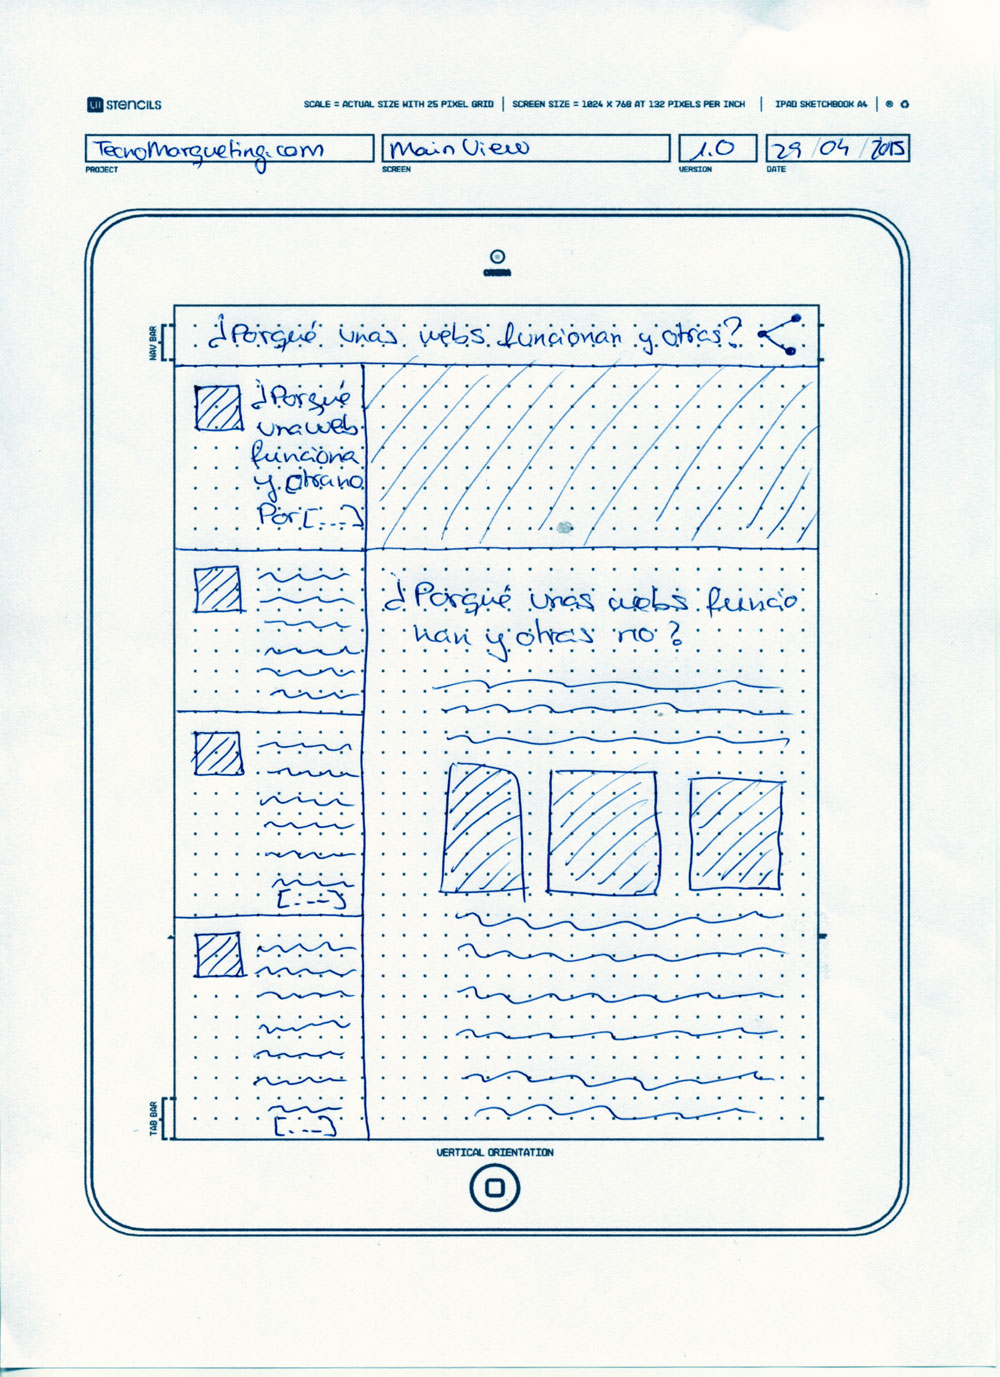 UI STENCILS
SCALE = ACTUAL SIZE WITH 25 PIXEL GRID | SCREEN SIZE = 1024 X 768 AT 132 PIXELS PER INCH | IPAD SKETCHBOOK A4 |
TecnoMarqueting.com
Main View
1.0
29/04/2015
PROJECT
SCREEN
VERSION
DATE
CAMERA
NAV BAR
¿Porqué unas webs funcionan y otras?
¿Porqué
una web
funciona
y otra no
Por [...]
¿Porqué unas webs funcio
nan y otras no?
[...]
[...]
TAB BAR
VERTICAL ORIENTATION